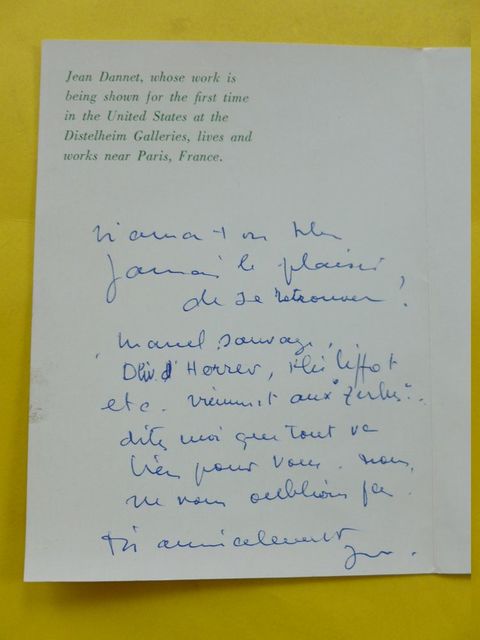 Jean Dannet, whose work is
being shown for the first time
in the United States at the
Distelheim Galleries, lives and
works near Paris, France.
N'aura-t-on plus
Jamais le plaisir
de se retrouver !
Marcel Sauvage,
etc. viennent aux
dites moi que tout va
bien pour vous. nous
ne vous oublions pas.
Très amicalement